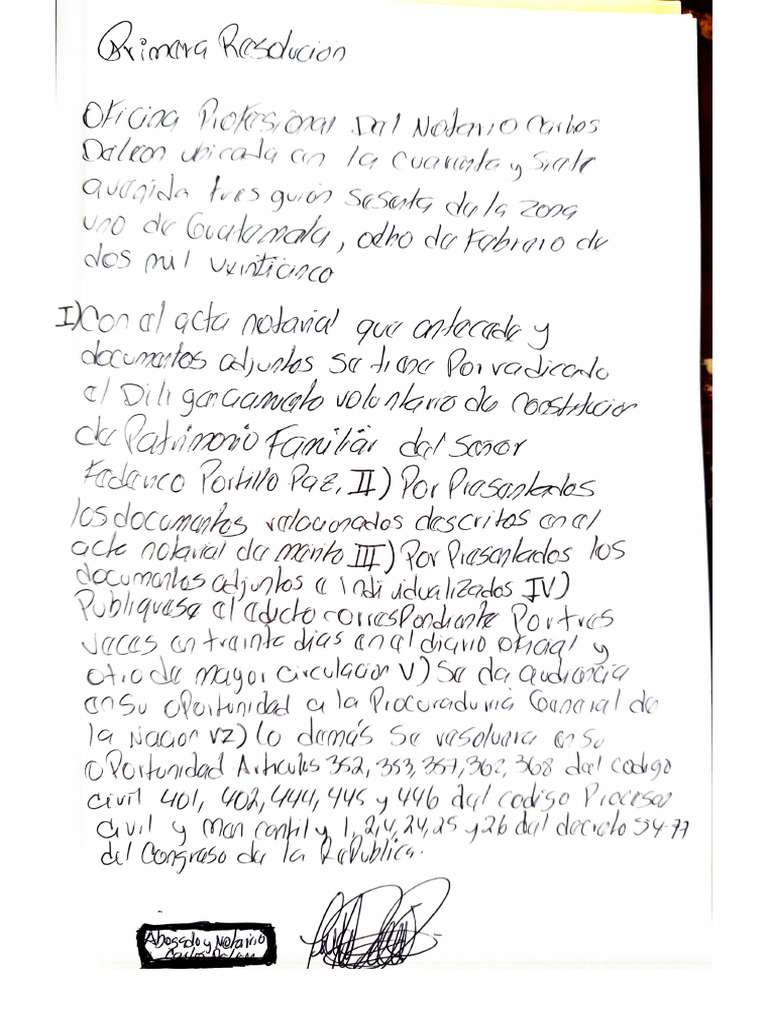 Primera Resolucion
Oficina Profesional Del Notario Carlos
Daleon ubicada en la cuarenta y siete
avenida tres guión sesenta de la zona
uno de Guatemala, ocho de Febrero de
dos mil veinticinco
I) Con el acta notarial que antecede y
documentos adjuntos se tiene Por radicado
el Diligenciamiento voluntario de Constitucion
de Patrimonio Familiar del Señor
Federico Portillo Paz, II) Por Presentados
los documentos relacionados descritos en el
acta notarial de merito III) Por Presentados los
documentos adjuntos e individualizados IV)
Publiquese el edicto correspondiente Por tres
veces en treinta dias en el diario oficial y
otro de mayor circulacion V) Se da audiencia
en su oportunidad a la Procuraduria General de
la Nacion VI) lo demás se resolvera en su
oportunidad Articulos 352, 353, 357, 362, 368 del codigo
civil 401, 402, 444, 445 y 446 del codigo Procesar
civil y Mercantil y 1, 2, 4, 24, 25 y 26 del decreto 54-77
del Congreso de la Republica.
Abogado y Notario
Carlos Daleon